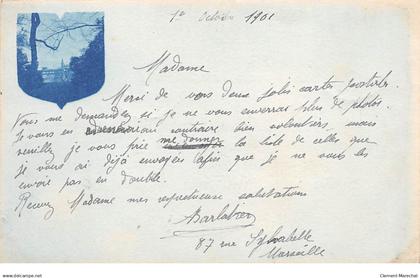 1er Octobre 1901
Madame
Merci de vos deux jolies cartes postales.
Vous me demandez si je ne vous enverrai plus de photos.
Je vous en au contraire bien volontiers, mais
veuillez je vous prie me donner la liste de celles que
je vous ai déjà envoyées afin que je ne vous les
envoie pas en double.
Recevez Madame mes respectueuses salutations
87 rue Sylvabelle
Marseille
delcampe.net
Clement-Marechat